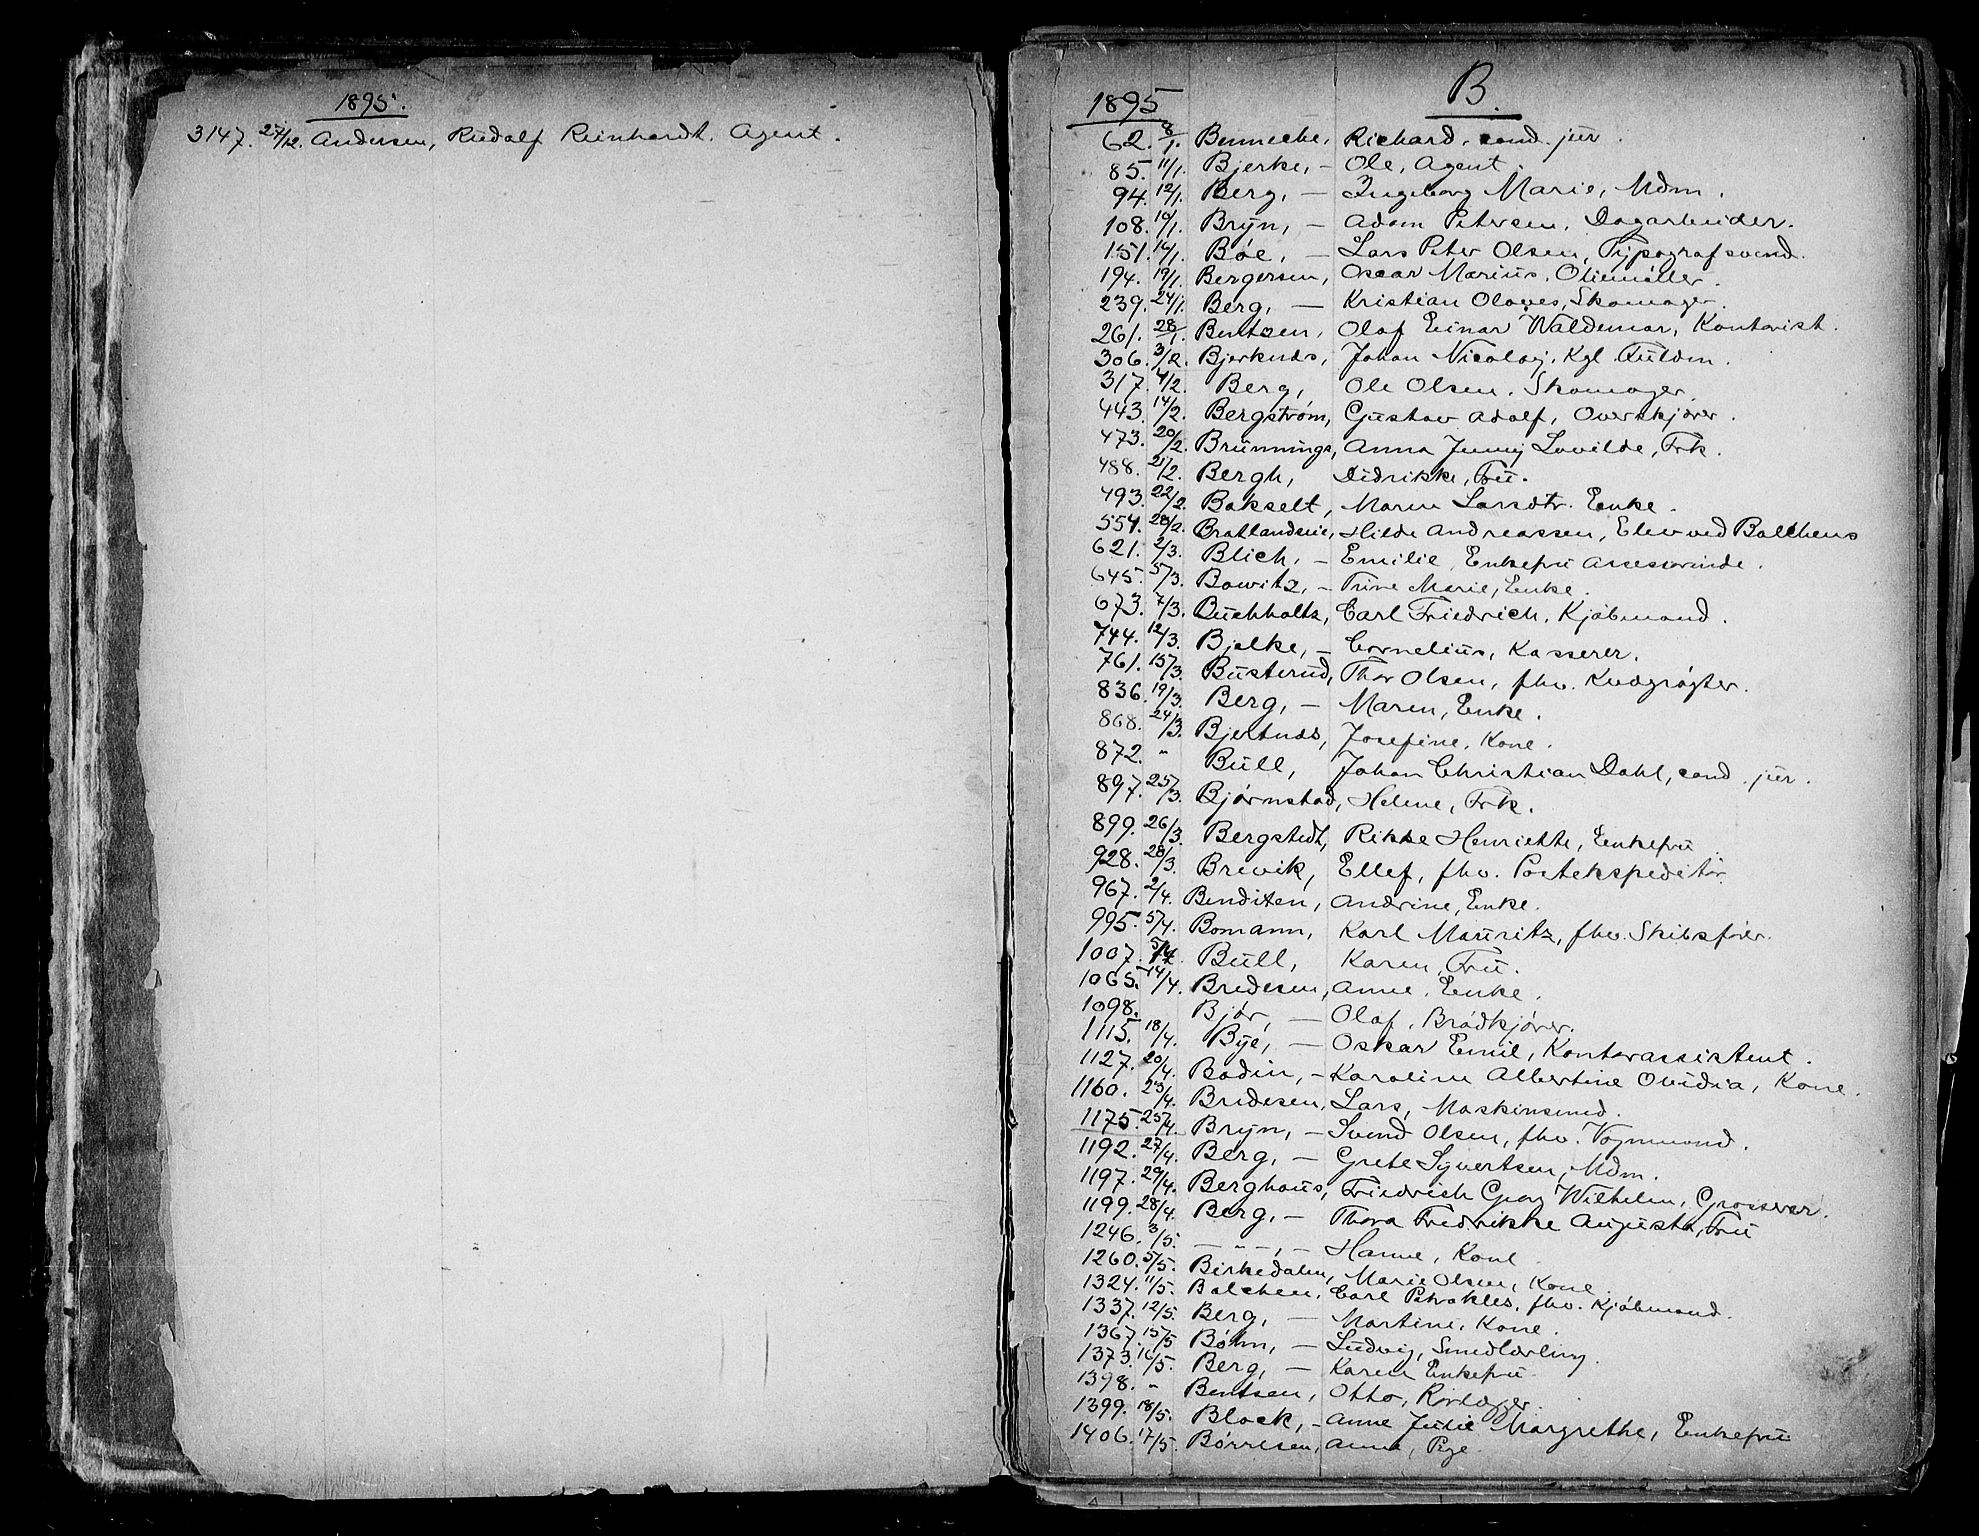 1895.
3147. 27/12. Andersen, Rudolf Reinhardt. Agent.
B.
1895
62. 8/1. Bennecke, Richard, cand. jur.
85. 11/1. Bjerke, – Ole, Agent.
94. 12/1. Berg, – Ingeborg Marie, Mdm.
108. 10/1. Brÿn, – Adam Petersen, Dagarbeider.
151. 14/1. Böe, – Lars Peter Olsen, Typografsvend.
194. 19/1. Bergersen, Oscar Marius, Oliemöller.
239. 24/1. Berg, – Kristian Olaves, Skomager.
261. 28/1. Bentzen, Olaf Einar Waldemar, Kontorist.
306. 3/2. Bjerknes, Johan Nicolaÿ, Kgl. Fuldm.
317. 4/2. Berg, Ole Olsen, Skomager.
443. 14/2. Bergström, Gustav Adolf, Overskjærer.
473. 20/2. Brunnings, Anna Jenny Lovilde, Frk.
488. 21/2. Bergh, Didrikke, Fru.
493. 22/2. Bakselt, Maren Larsdtr. Enke.
554. 28/2. Bratlandseie, Hilde Andreassen, Elev ved Balchens
621. 2/3. Blich, – Emilie, Enkefru Assessorinde.
645. 5/3. Bowitz, – Trine Marie, Enke.
673. 7/3. Buchholtz, Carl Friedrich, Kjöbmand.
744. 12/3. Bjelke, – Cornelius, Kasserer.
761. 15/3. Busterud, Thor Olsen, fhv. Kvægrögter.
836. 19/3. Berg, – Maren, Enke.
868. 24/3. Bjertnes, Josefine, Kone.
872. " Bull, Johan Christian Dahl, cand. jur.
897. 25/3. Björnstad, Helene, Frk.
899. 26/3. Bergstedt, Rikke Henriette, Enkefru
928. 28/3. Brevik, Ellef, fhv. Postekspeditör
967. 2/4. Benditen, Andrine, Enke.
995. 5/4. Bomann, Karl Mauritz, fhv. Skibsförer.
1007. 5/4. Bull, Karen, Fru.
1065. 14/4. Bredesen, Anne, Enke.
1098. Björ, – Olaf, Brödkjörer.
1115. 18/4. Bÿe, – Oskar Emil, Kontorassistent.
1127. 20/4. Bodin, – Karoline Albertine Ovidia, Kone.
1160. 23/4. Bredesen, Lars, Maskinsmed.
1175. 25/4. Brÿn, – Svend Olsen, fhv. Vognmand.
1192. 27/4. Berg, – Grete Syvertsen, Mdm.
1197. 29/4. Berghaus, Friedrich Georg Wilhelm, Grosserer.
1199. 28/4. Berg, – Thora Fredrikke Augusta, Fru
1246. 3/5. – " –, – Hanne, Kone
1260. 5/5. Birkedalen, Marie Olsen, Kone.
1324. 11/5. Balchen, Carl Petrakles, fhv. Kjöbmand.
1337. 12/5. Berg, – Martine, Kone.
1367. 15/5 Böhm, – Ludvig, Smedlærling.
1373. 16/5. Berg, – Karen Enkefru
1398. " Bentsen, Otto, Rörlægger
1399. 18/5. Block, – Anne Julie Margrethe, Enkefru
1406. 17/5. Börresen, Anna, Pige